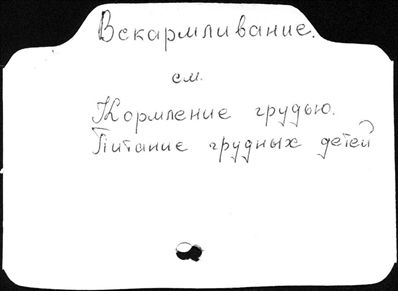 Вскармливание.
см.
Кормление грудью.
Питание грудных детей